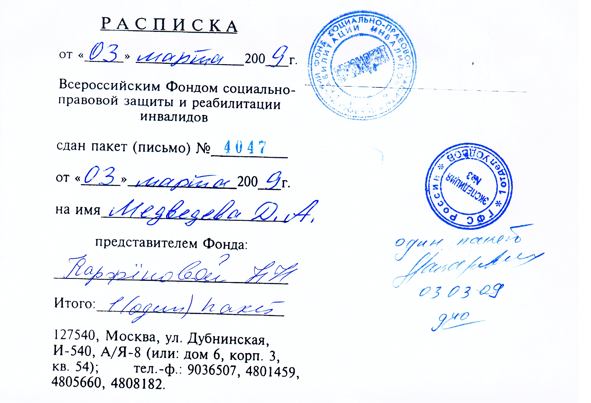 РАСПИСКА
от «03» марта 2009 г.
Всероссийским Фондом социально-
правовой защиты и реабилитации
инвалидов
сдан пакет (письмо) № 4047
от «03» марта 2009 г.
на имя Медведева Д. А.
представителем Фонда:
Н Н
Итого: 1 (один) пакет
127540, Москва, ул. Дубнинская,
И-540, А/Я-8 (или: дом 6, корп. 3,
кв. 54); тел.-ф.: 9036507, 4801459,
4805660, 4808182.
ФОНД СОЦИАЛЬНО-ПРАВОВОЙ
ИНВАЛИДОВ
1 отдел УОДВОВ
ГФС России
ЭКСПЕДИЦИЯ
№3
один пакет
03 03 09